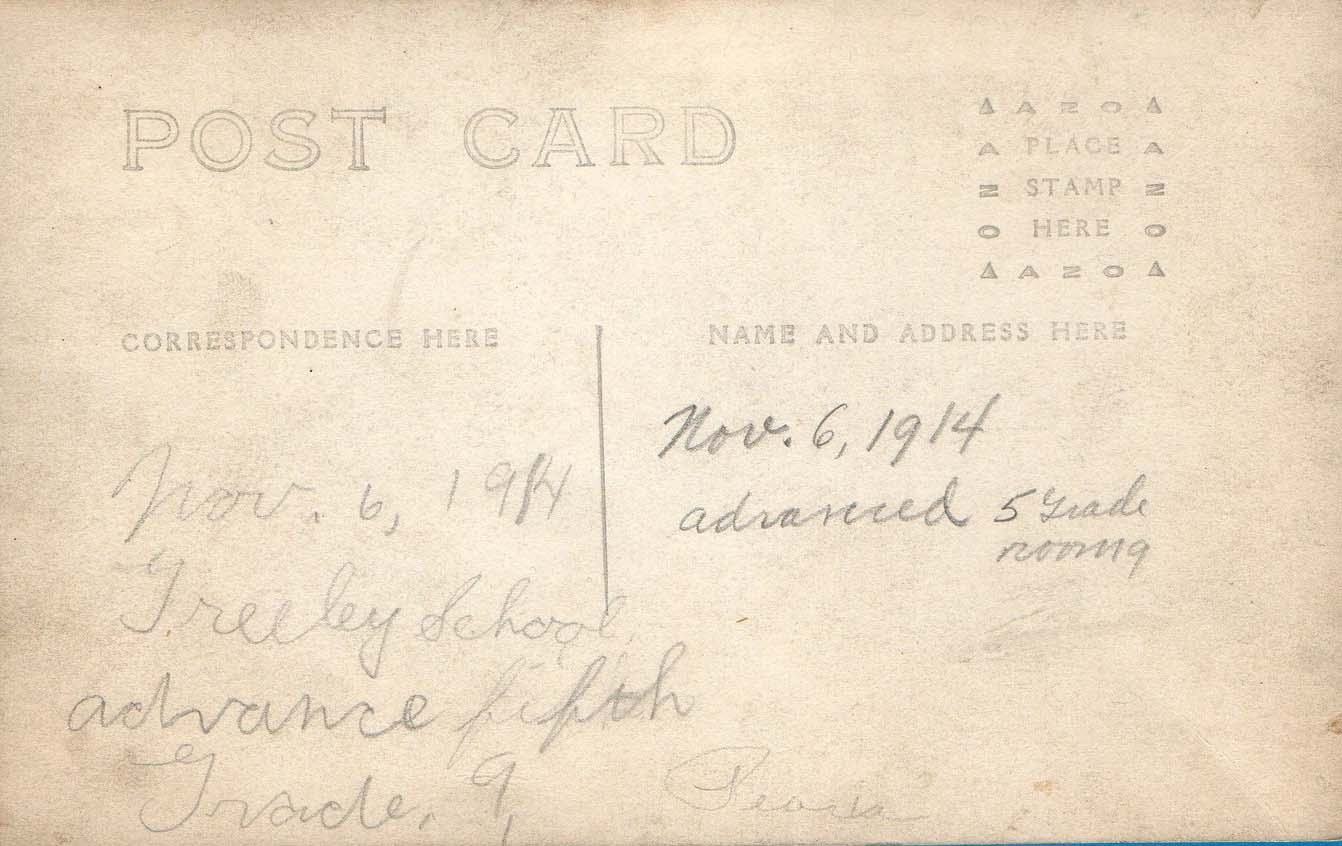 POST CARD
AZO
A PLACE A
N STAMP N
O HERE O
AZO
CORRESPONDENCE HERE
NAME AND ADDRESS HERE
Nov. 6, 1914
Greeley School
advance fifth
Grade, 9,
Nov. 6, 1914
advanced 5 Grade
room 9
Peoria